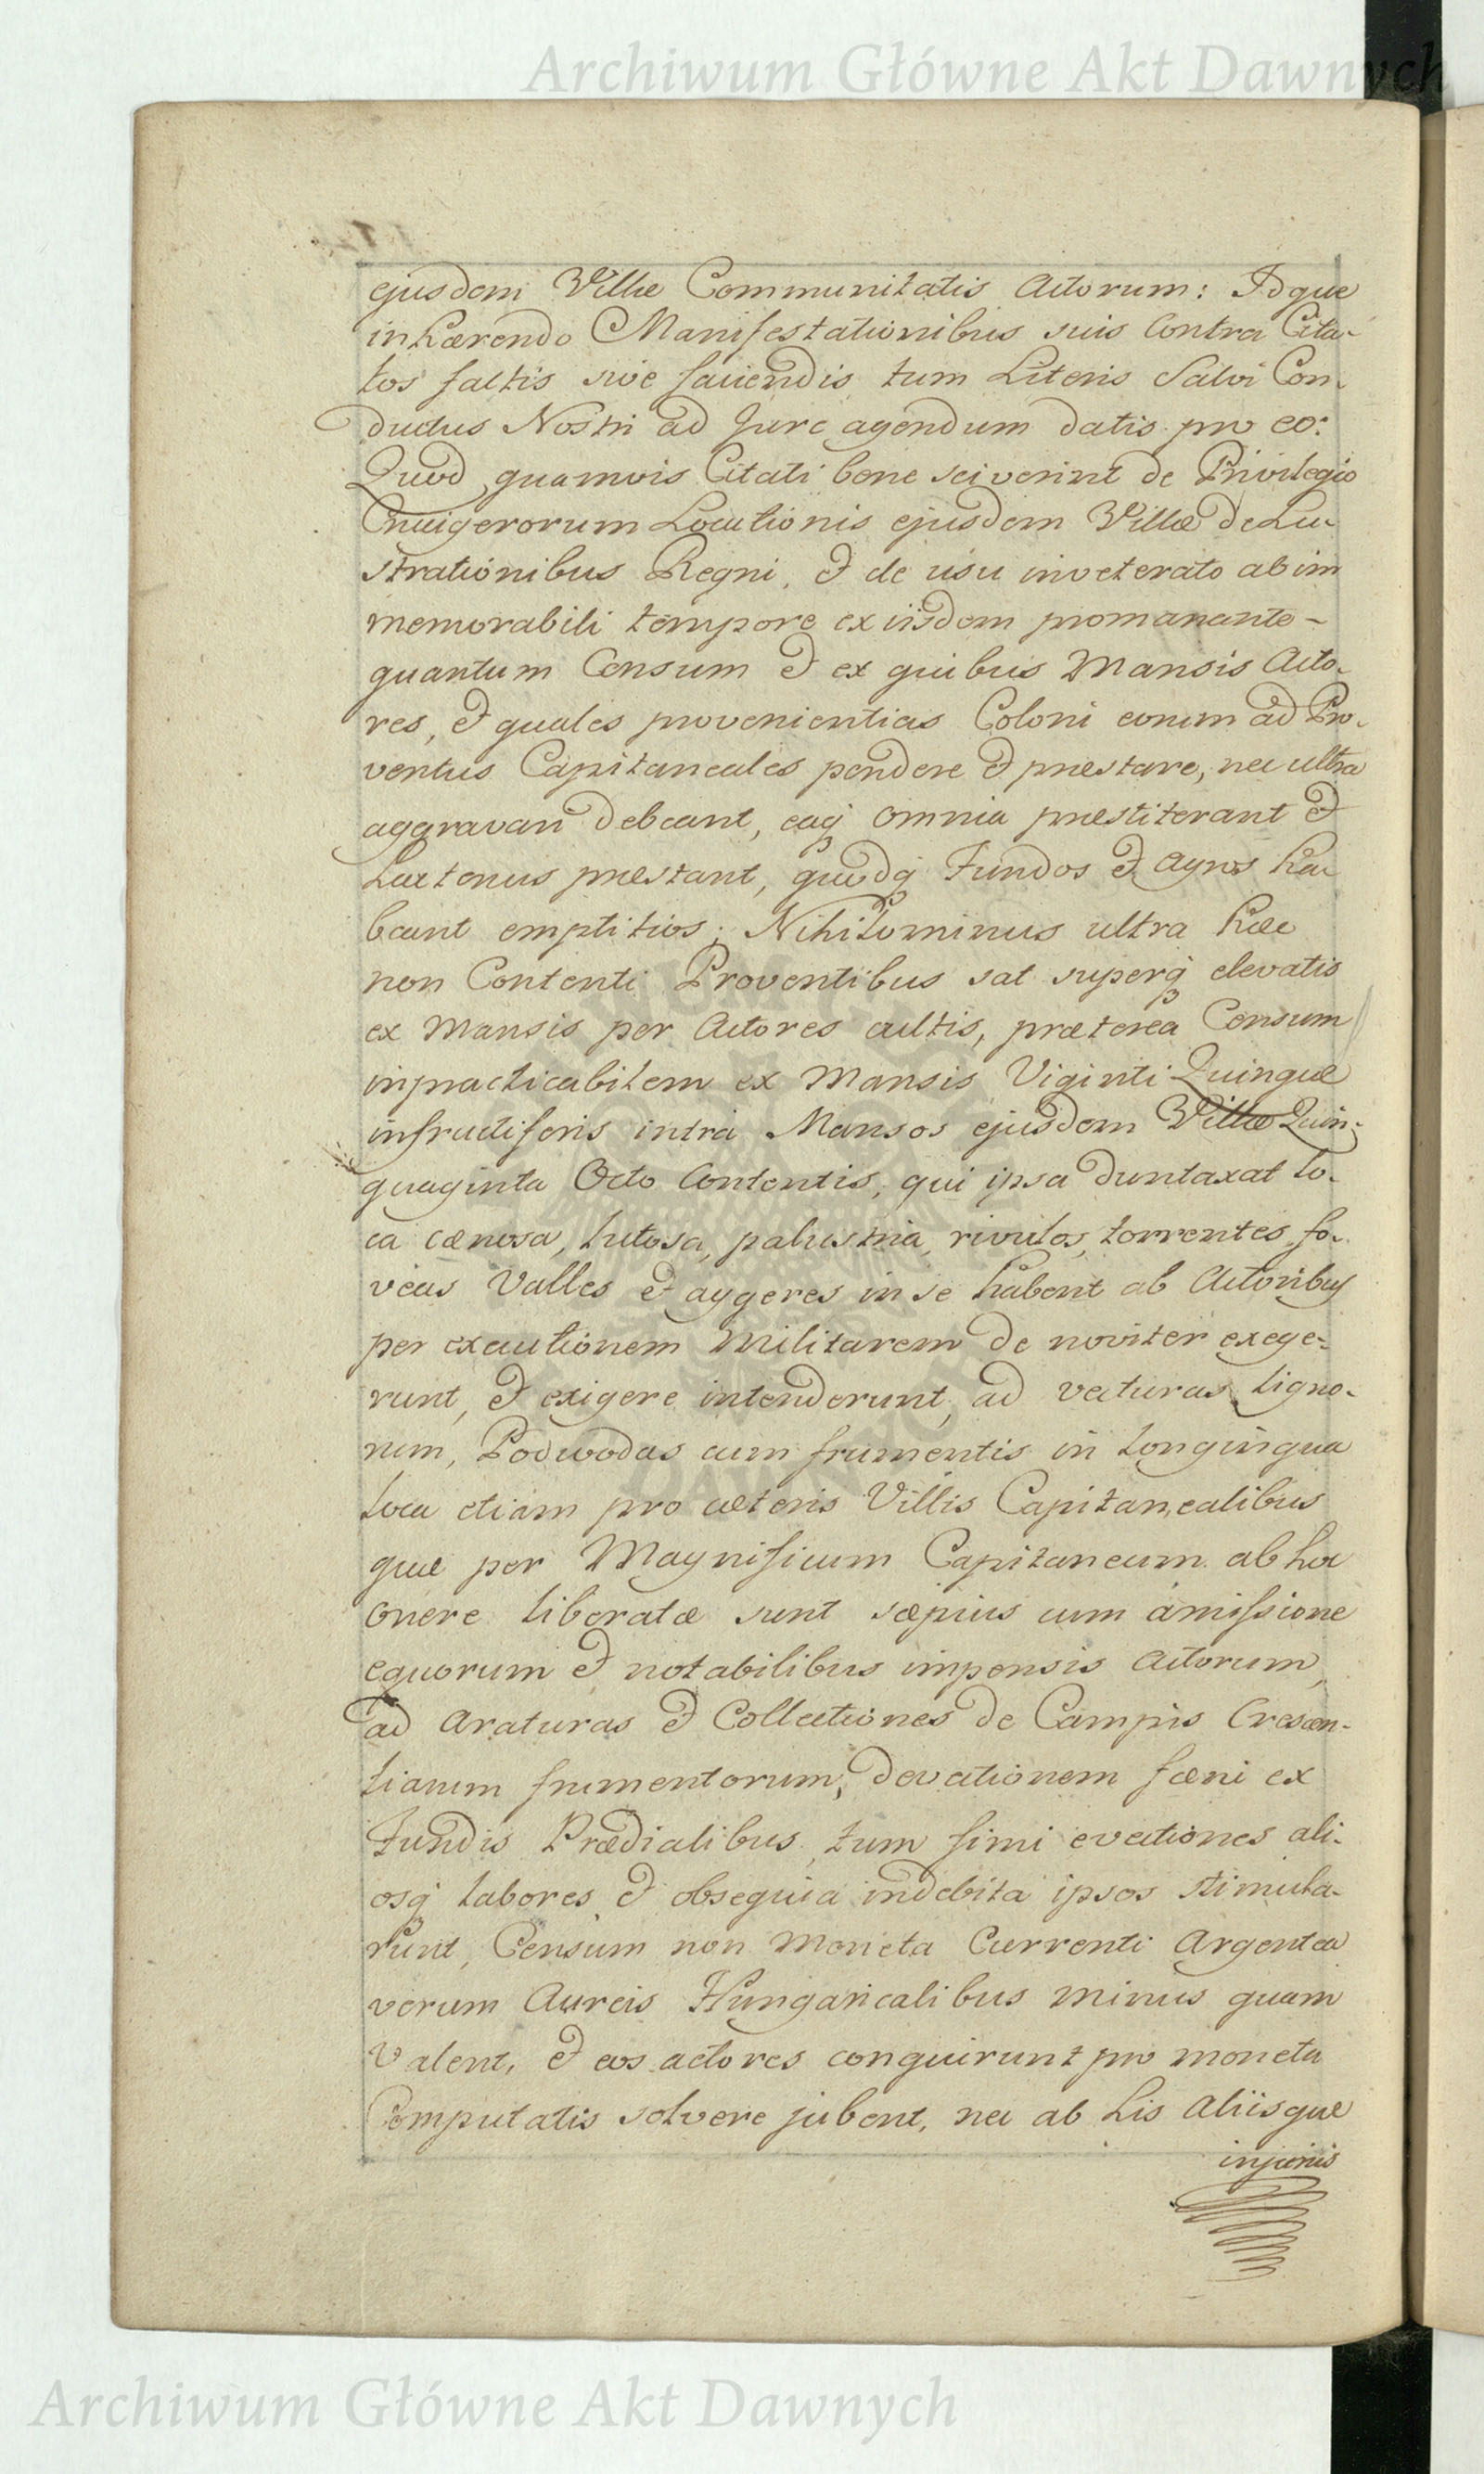 Archiwum Główne Akt Dawnych
ejusdem Villæ Communitatis Actorum: Idque
inhærendo Manifestationibus suis Contra Cita-
tos factis sive faciendis, tum Literis Salvi Con-
ductus Nostri ad Jure agendum datis pro eo:
Quod quamvis Citati bene sciverint de Privilegio
Locutionis ejusdem Villæ de Lu-
strationibus Regni, et de usu inveterato ab im
memorabili tempore ex iisdem promanante -
quantum Censum et ex quibus Mansis Acto-
res, et quales provenientias Coloni eorum ad Pro-
ventus Capitaneales pendere et præstare, nec ultra
aggravari debeant, eaq omnia præstiterant et
hactenus præstant, quodq Fundos et agros ha
beant emptitios; Nihilominus ultra hæc
non Contenti Proventibus sat superq elevatis
ex Mansis per Actores cultis, præterea Censum
inpracticabilem ex Mansis Viginti Quinque
infructiferis intra Mansos ejusdem Villæ Quin-
quaginta Octo Contentis, qui ipsa duntaxat lo-
ca cænosa, lutosa, palustria, rivulos, torrentes, fo-
veas Valles et aggeres in se habent ab Actoribus
per executionem Militarem de noviter exege-
runt, et exigere intenderunt, ad vecturas ligno-
rum, Podwodas cum frumentis in longinqua
loca etiam pro cæteris Villis Capitanealibus
quæ per Magnificum Capitaneum ab hoc
onere liberatæ sunt sæpius cum amissione
equorum et notabilibus impensis Actorum,
ad Araturas et Collectiones de Campis Crescen-
tiarum frumentorum, devectionem fæni ex
Fundis Prædialibus, tum fimi evectiones ali-
osq labores, et obsequia indebita ipsos stimula-
runt, Censum non Moneta Currenti Argentea
verum Aureis Hungaricalibus minus quam
valent, et eos actores conquirunt pro moneta
Computatis solvere jubent, nec ab his aliisque
injuriis
Archiwum Główne Akt Dawnych